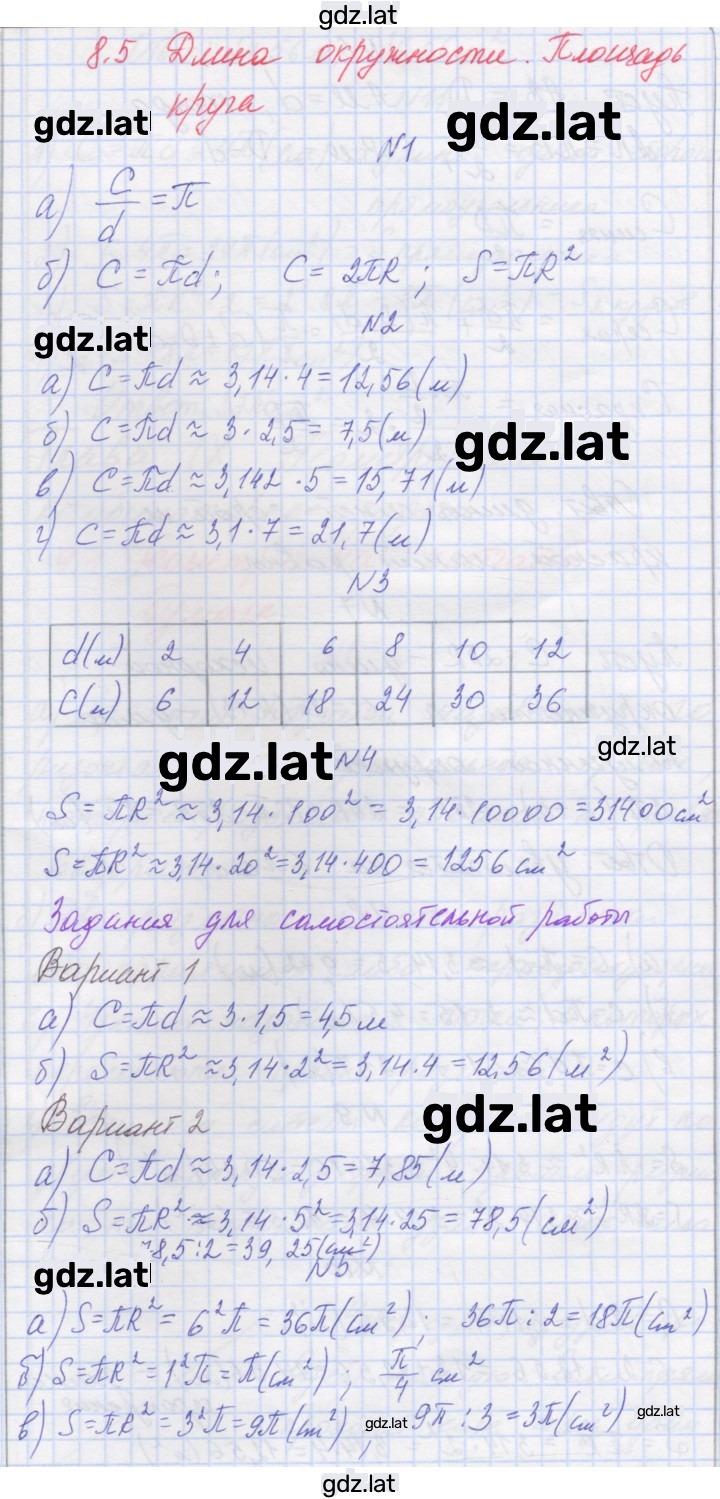 gdz.lat
8.5 Длина окружности. Площадь
круга
gdz.lat
gdz.lat
№1
а) C/d = π
б) C = πd; C = 2πR; S = πR²
№2
gdz.lat
а) C = πd ≈ 3,14 · 4 = 12,56 (м)
б) C = πd ≈ 3 · 2,5 = 7,5 (м)
gdz.lat
в) C = πd ≈ 3,142 · 5 = 15,71 (м)
г) C = πd ≈ 3,1 · 7 = 21,7 (м)
№3
d(м) 2 4 6 8 10 12
C(м) 6 12 18 24 30 36
gdz.lat
№4
gdz.lat
S = πR² ≈ 3,14 · 100² = 3,14 · 10000 = 31400 см²
S = πR² ≈ 3,14 · 20² = 3,14 · 400 = 1256 см²
Задания для самостоятельной работы
Вариант 1
а) C = πd ≈ 3 · 1,5 = 4,5 м
б) S = πR² ≈ 3,14 · 2² = 3,14 · 4 = 12,56 (м²)
Вариант 2
gdz.lat
а) C = πd ≈ 3,14 · 2,5 = 7,85 (м)
б) S = πR² ≈ 3,14 · 5² = 3,14 · 25 = 78,5 (см²)
78,5 : 2 = 39,25 (см²)
gdz.lat
№5
а) S = πR² = 6²π = 36π (см²); 36π : 2 = 18π (см²)
б) S = πR² = 1²π = π (см²); π/4 см²
в) S = πR² = 3²π = 9π (см²), 9π : 3 = 3π (см²)
gdz.lat
gdz.lat
gdz.lat